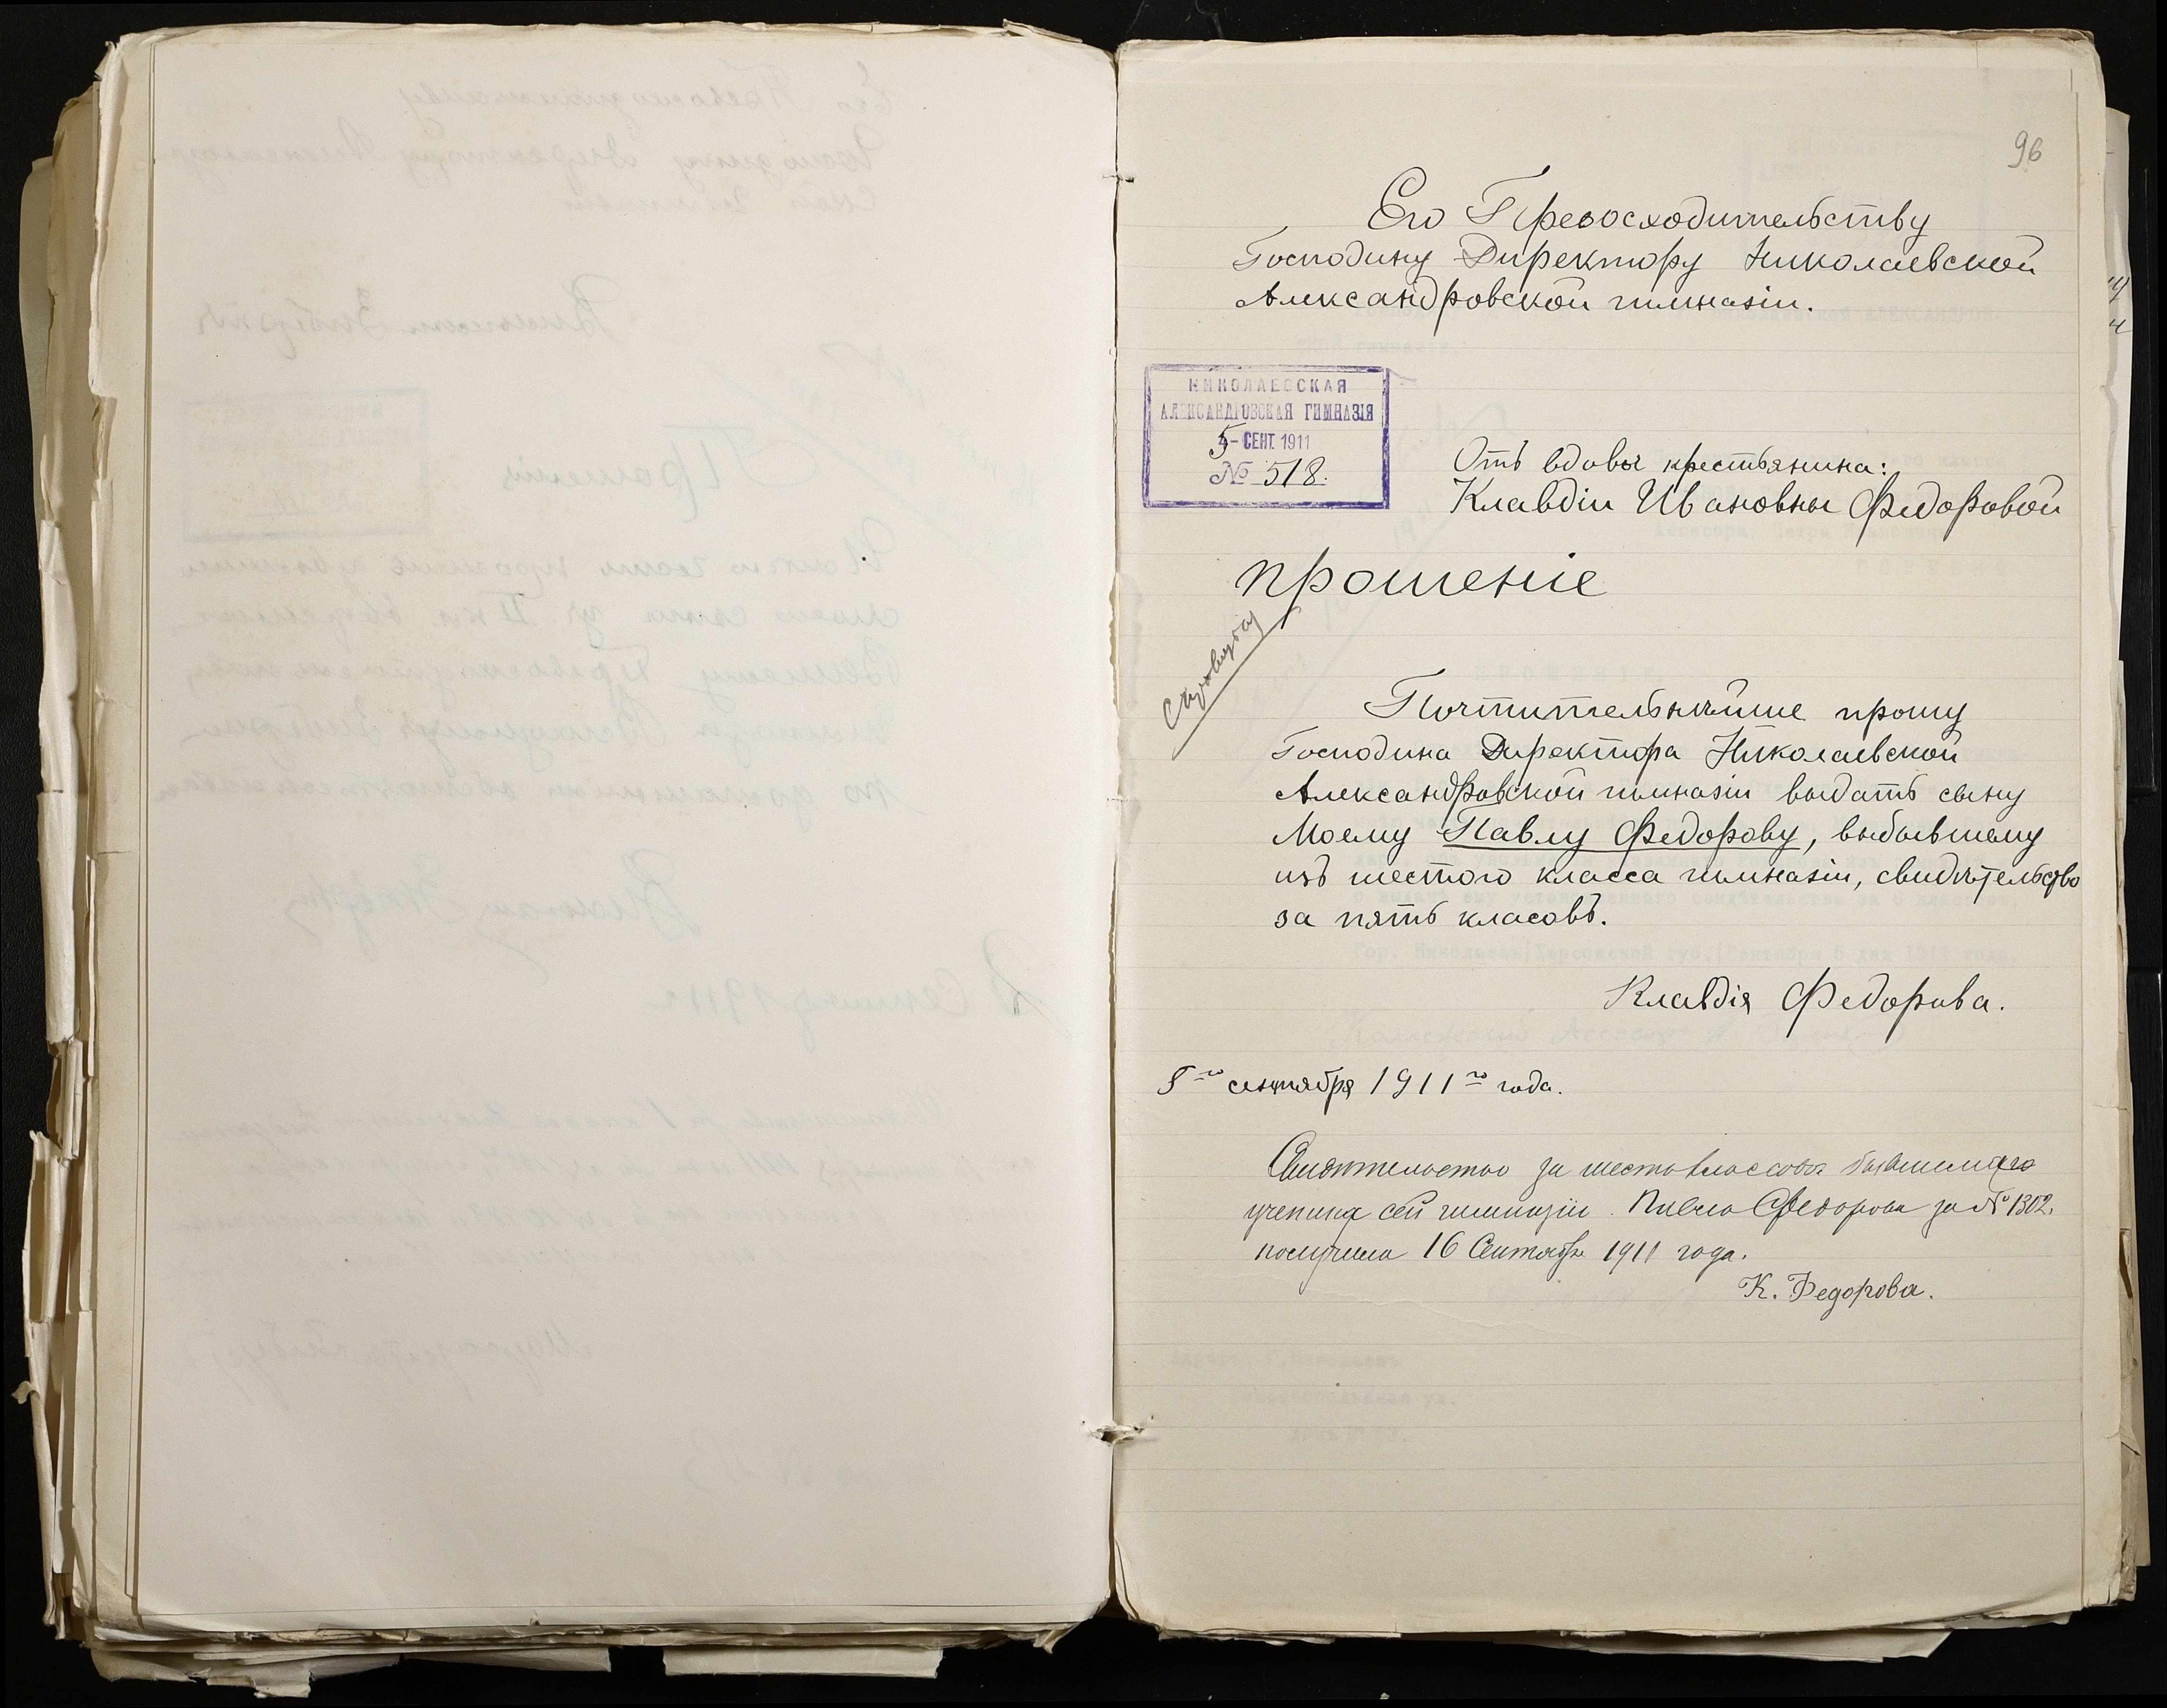 96
Его Превосходительству
Господину Директору Николаевской
Александровской гимназіи.
НИКОЛАЕВСКАЯ
АЛЕКСАНДРОВСКАЯ ГИМНАЗІЯ
5 - СЕНТ. 1911
№ 518.
Отъ вдовы крестьянина:
Клавдіи Ивановны Федоровой
прошеніе
Почтительнѣйше прошу
Господина Директора Николаевской
Александровской гимназіи выдать сыну
Моему Павлу Федорову, выбывшему
изъ шестого класса гимназіи, свидѣтельство
за пять класовъ.
Клавдія Федорова.
5го сентября 1911го года.
Свидѣтельство за шесть классовъ бывшаго
ученика сей гимназіи Павла Федорова за № 1302.
получила 16 Сентября 1911 года.
К. Федорова.